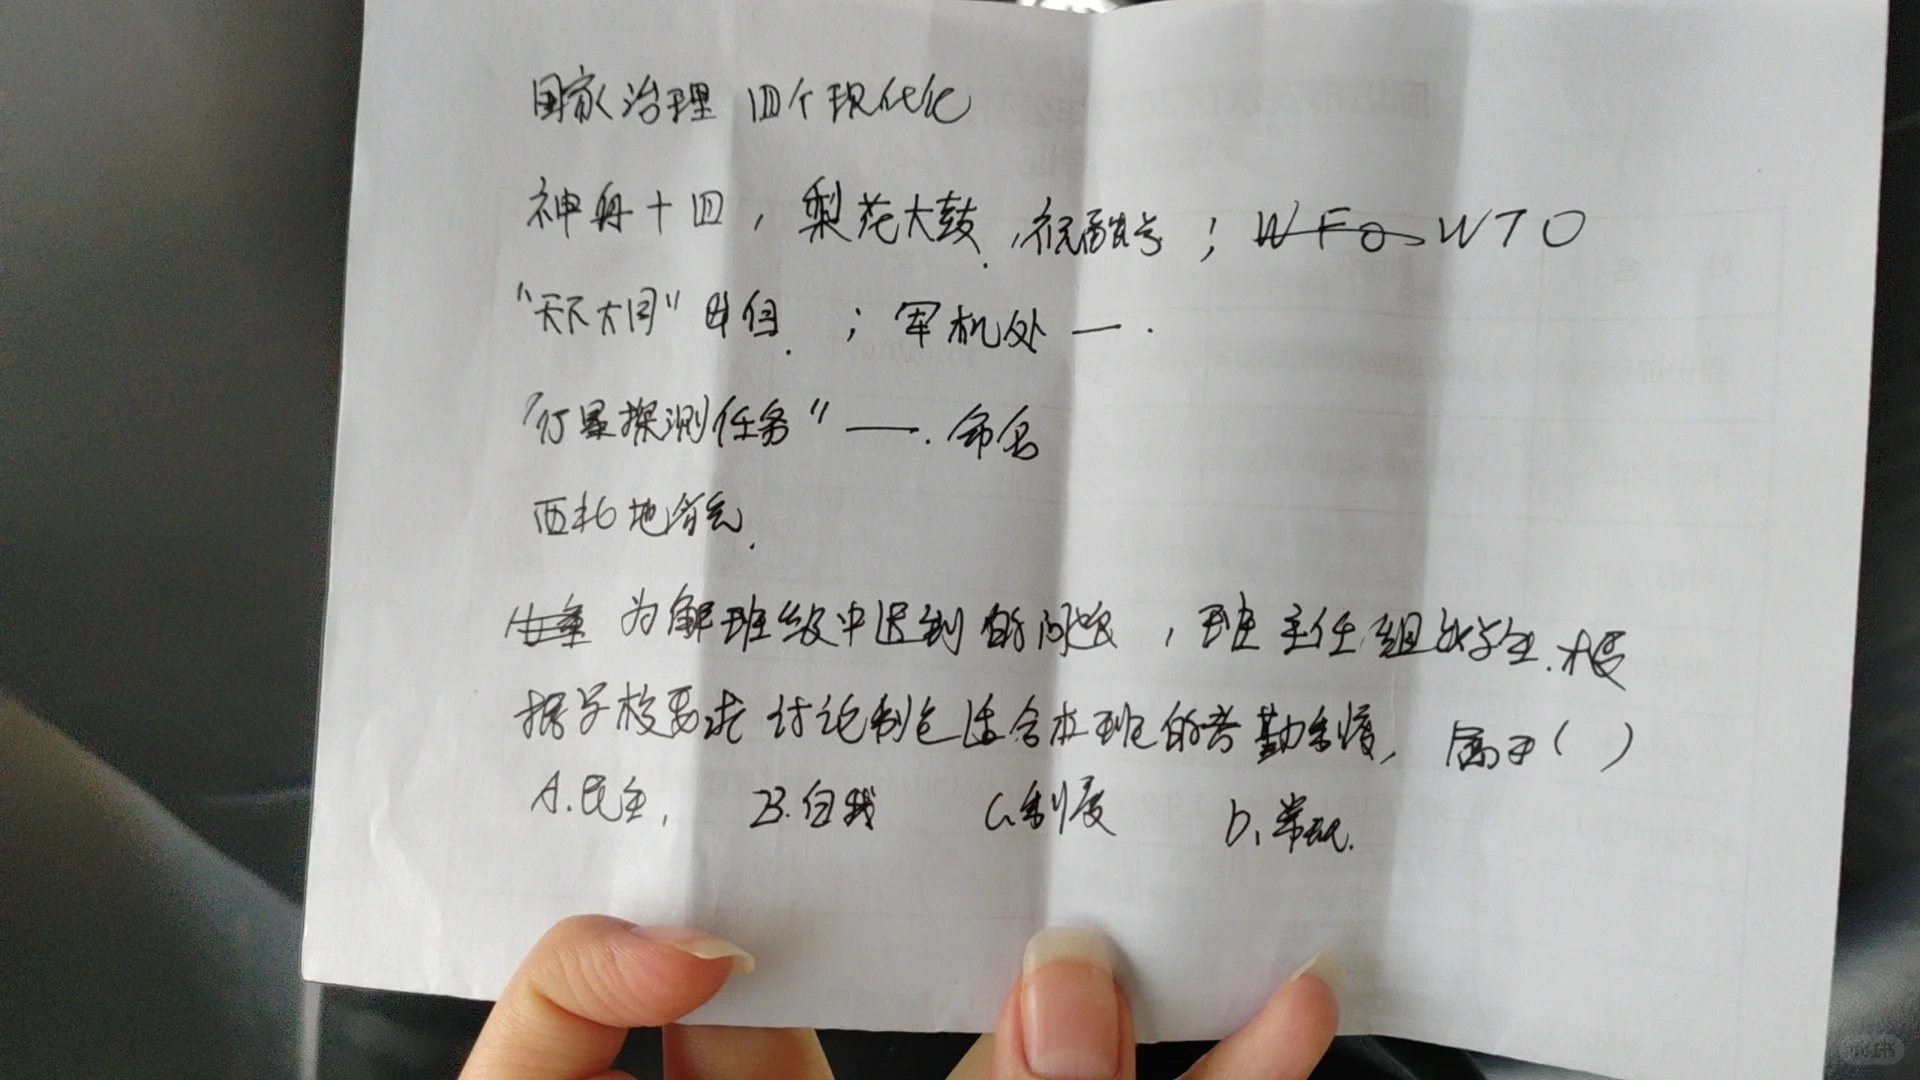 国家治理 四个现代化
神舟十四，梨花大鼓，祝融号；WTO
“天下大同”出自．；军机处—．
“行星探测任务”——．命名
西北地首先．
为解班级中迟到的问题，班主任组织学生．根
据学校要求讨论制定适合本班的考勤制度，属于（ ）
A.民主， B.自我 C.制度 D、常规．
小红书